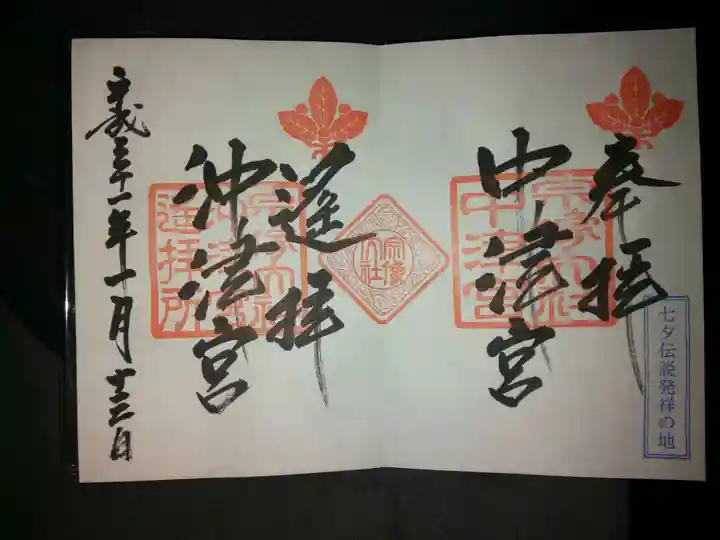 奉拝
中津宮
宗像大社
中津宮
七夕伝説発祥の地
宗像
大社
遙拝
沖津宮
宗像大社
沖津宮
遥拝所
平成三十一年一月十三日